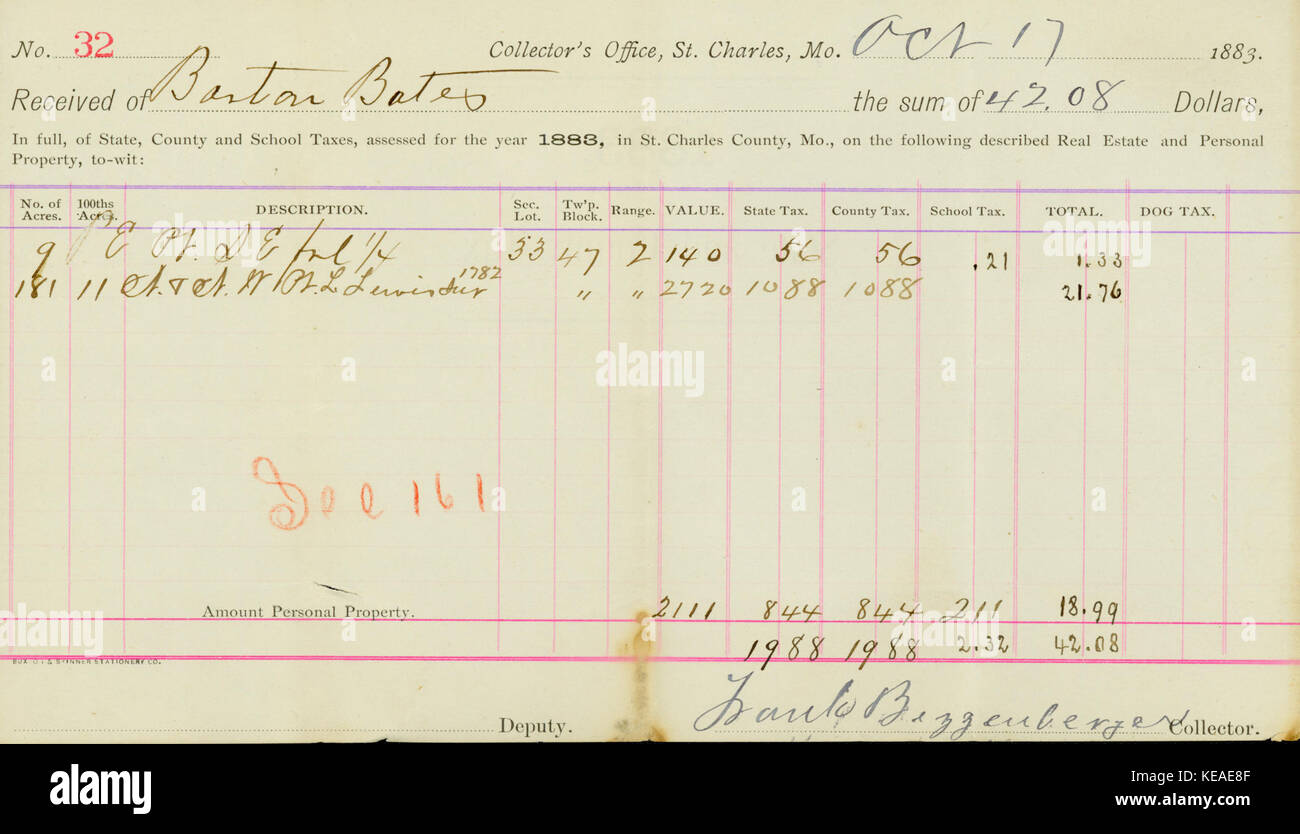 No. 32 Collector's Office, St. Charles, Mo. Oct 17 1883.
Received of Barton Bates the sum of 42.08 Dollars,
In full, of State, County and School Taxes, assessed for the year 1883, in St. Charles County, Mo., on the following described Real Estate and Personal
Property, to-wit:
No. of Acres. 100ths Acres. DESCRIPTION. Sec. Lot. Tw'p. Block. Range. VALUE. State Tax. County Tax. School Tax. TOTAL. DOG TAX.
9 Pt. S E frl 1/4 33 47 2 140 56 56 .21 1.33
181 11 Lewis Sur 1782 " " 2720 1088 1088 21.76
See 161
Amount Personal Property. 2111 844 844 211 18.99
1988 1988 2.32 42.08
& SKINNER STATIONERY CO.
Deputy. Frank Bezzenberger Collector.
a alamy a
alamy
Image ID: KEAE8F
www.alamy.com